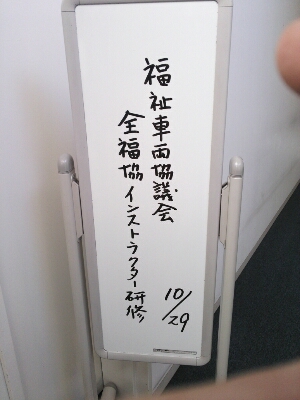 福祉車両協議会
全福協インストラクター研修
10/29